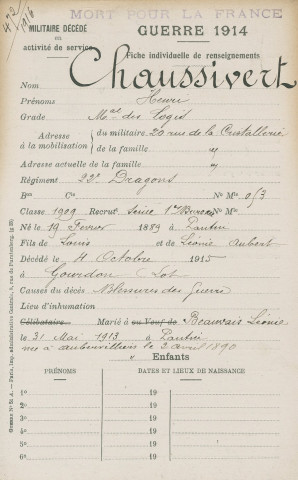 MORT POUR LA FRANCE
MILITAIRE DÉCÉDÉ
en
activité de service
GUERRE 1914
Fiche individuelle de renseignements
Nom Chaussivert
Prénoms Henri
Grade Mal des Logis
Adresse à la mobilisation du militaire 20 rue de la Cristallerie
de la famille "
Adresse actuelle de la famille "
Régiment 22e Dragons
Bon Cie No Mle 053
Classe 1909 Recrut Seine 1er Bureau No Mle
Né le 19 Février 1889 à Pantin
Fils de Louis et de Léonie Aubert
Décédé le 4 Octobre 1915
à Gourdon Lot
Causes du décès Blessures de Guerre
Lieu d'inhumation
Célibataire Marié à ou Veuf de Beauvais Léonie
le 31 Mai 1913 à Pantin
née à Aubervilliers le 2 avril 1890
" Enfants
PRÉNOMS DATES ET LIEUX DE NAISSANCE
1° 19
2° 19
3° 19
4° 19
5° 19
6° 19